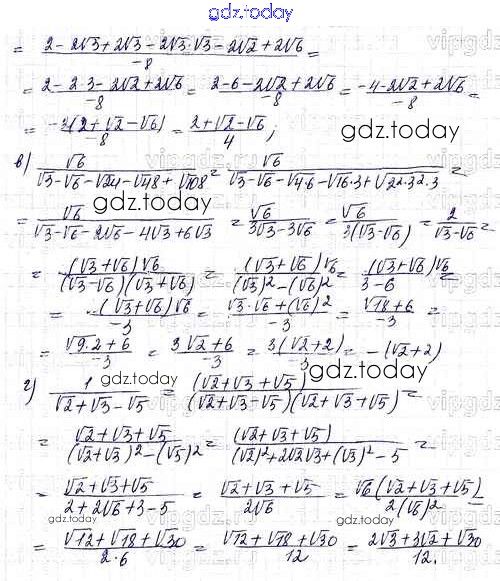 gdz.today
= (2-2√3+2√3-2√3·√3-2√2+2√6)/-8 =
= (2-2·3-2√2+2√6)/-8 = (2-6-2√2+2√6)/-8 = (-4-2√2+2√6)/-8 =
= /-8 = (2+√2-√6)/4 ;
gdz.today
в) √6/(√3-√6-√24-√48+√108) = √6/(√3-√6-√4·6-√16·3+√2²·3²·3) =
= √6/(√3-√6-2√6-4√3+6√3) = √6/(3√3-3√6) = √6/(3(√3-√6)) = 2/(√3-√6) =
gdz.today
= (√3+√6)√6/((√3-√6)(√3+√6)) = (√3+√6)√6/((√3)²-(√6)²) = (√3+√6)√6/(3-6) =
= (√3+√6)√6/-3 = (√3·√6+(√6)²)/-3 = (√18+6)/-3 =
= (√9·2+6)/-3 = (3√2+6)/-3 = 3(√2+2)/-3 = -(√2+2)
gdz.today
gdz.today
г) 1/(√2+√3-√5) = (√2+√3+√5)/((√2+√3-√5)(√2+√3+√5)) =
= (√2+√3+√5)/((√2+√3)²-(√5)²) = (√2+√3+√5)/((√2)²+2√2√3+(√3)²-5) =
= (√2+√3+√5)/(2+2√6+3-5) = (√2+√3+√5)/(2√6) = √6(√2+√3+√5)/(2(√6)²) =
gdz.today
gdz.today
= (√12+√18+√30)/(2·6) = (√12+√18+√30)/12 = (2√3+3√2+√30)/12.